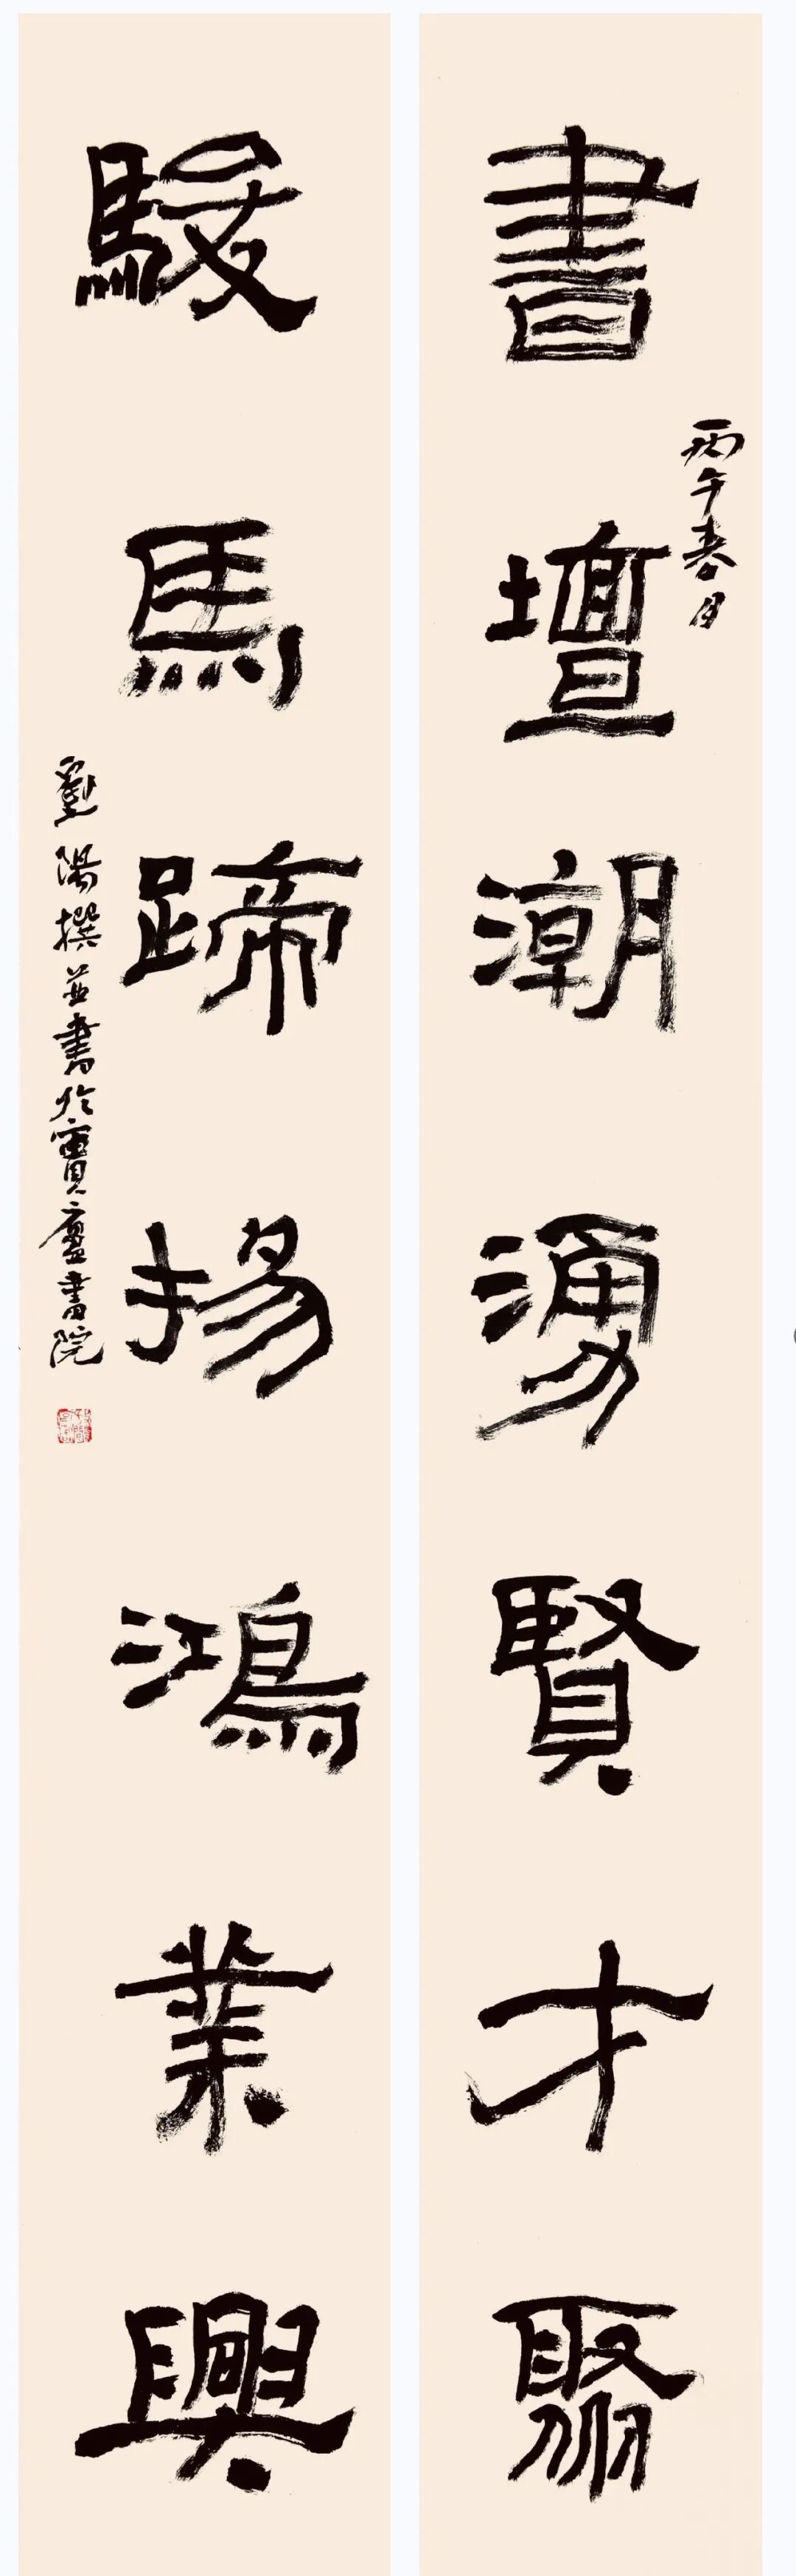 書壇潮湧賢才聚
丙午春月
駿馬蹄揚鴻業興
劉陽撰並書於寶廬書院